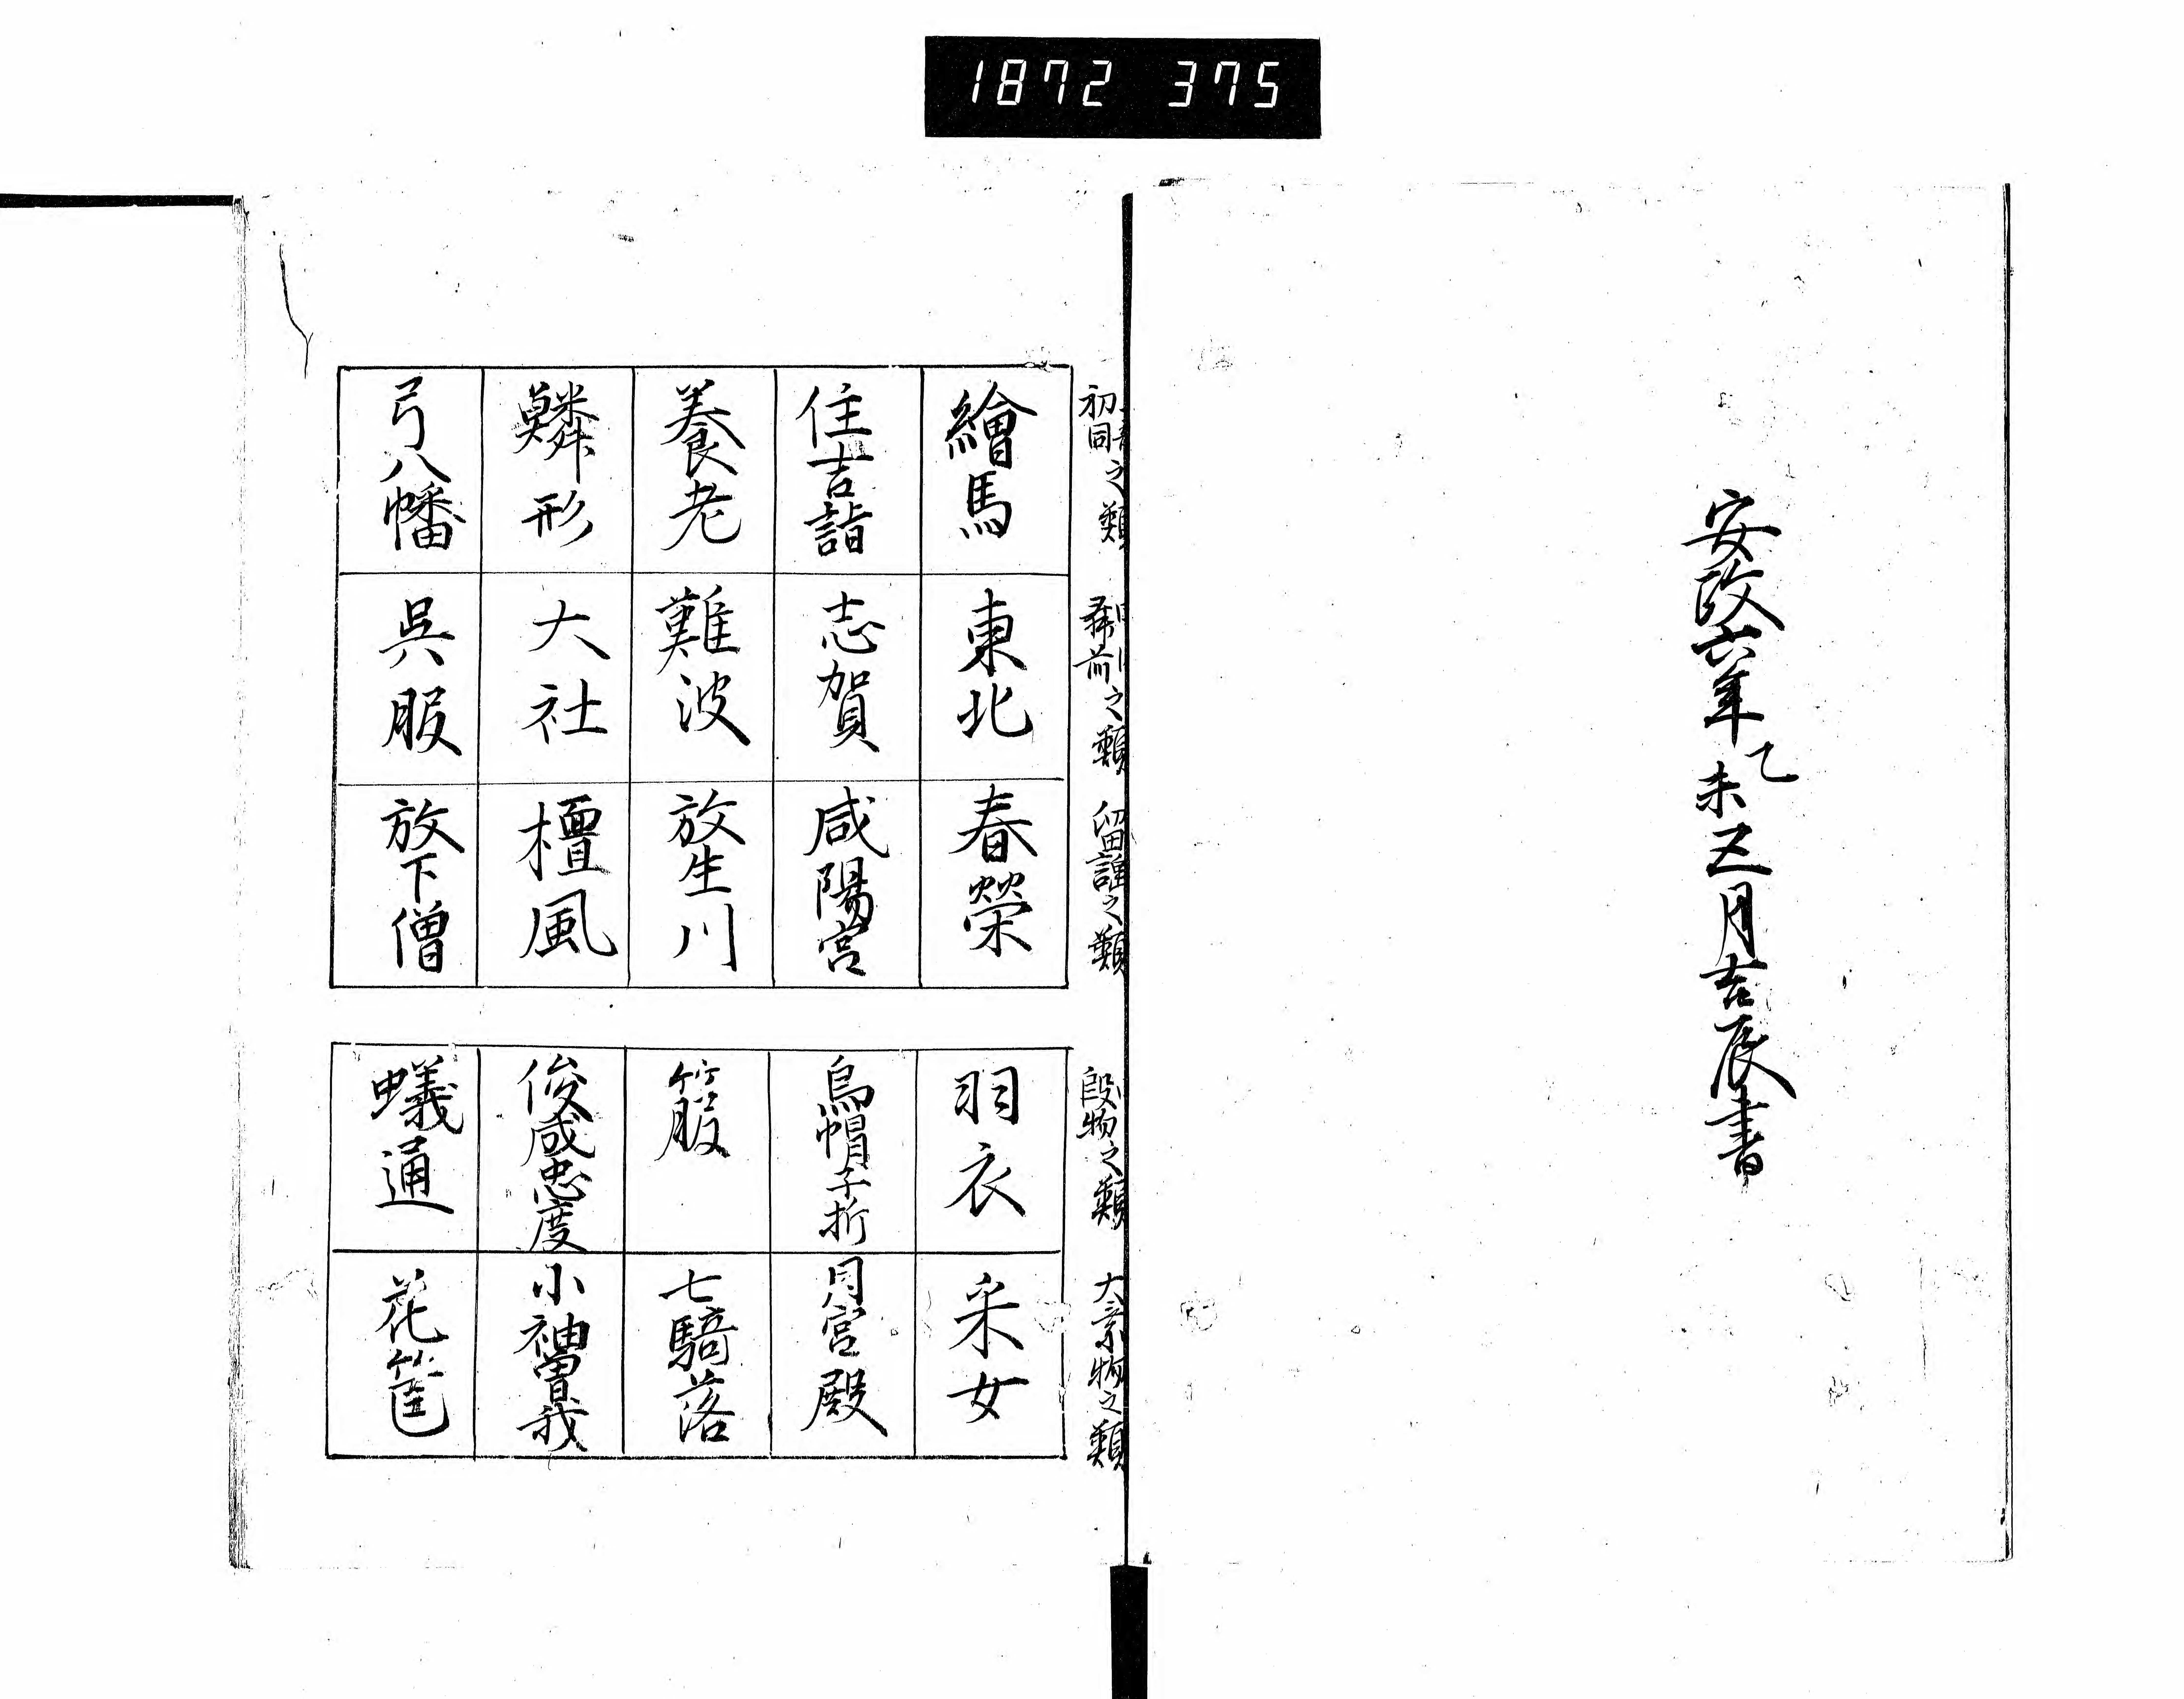 1872 375
安政六年己未五月吉辰書
初同之類
前之類
留謡之類
段物之類
物之類
繪馬
東北
春榮
住吉詣
志賀
咸陽宮
養老
難波
放生川
鱗形
大社
檀風
弓八幡
呉服
放下僧
羽衣
采女
烏帽子折
月宮殿
箙
七騎落
俊成忠度
小袖曽我
蟻通
花筐